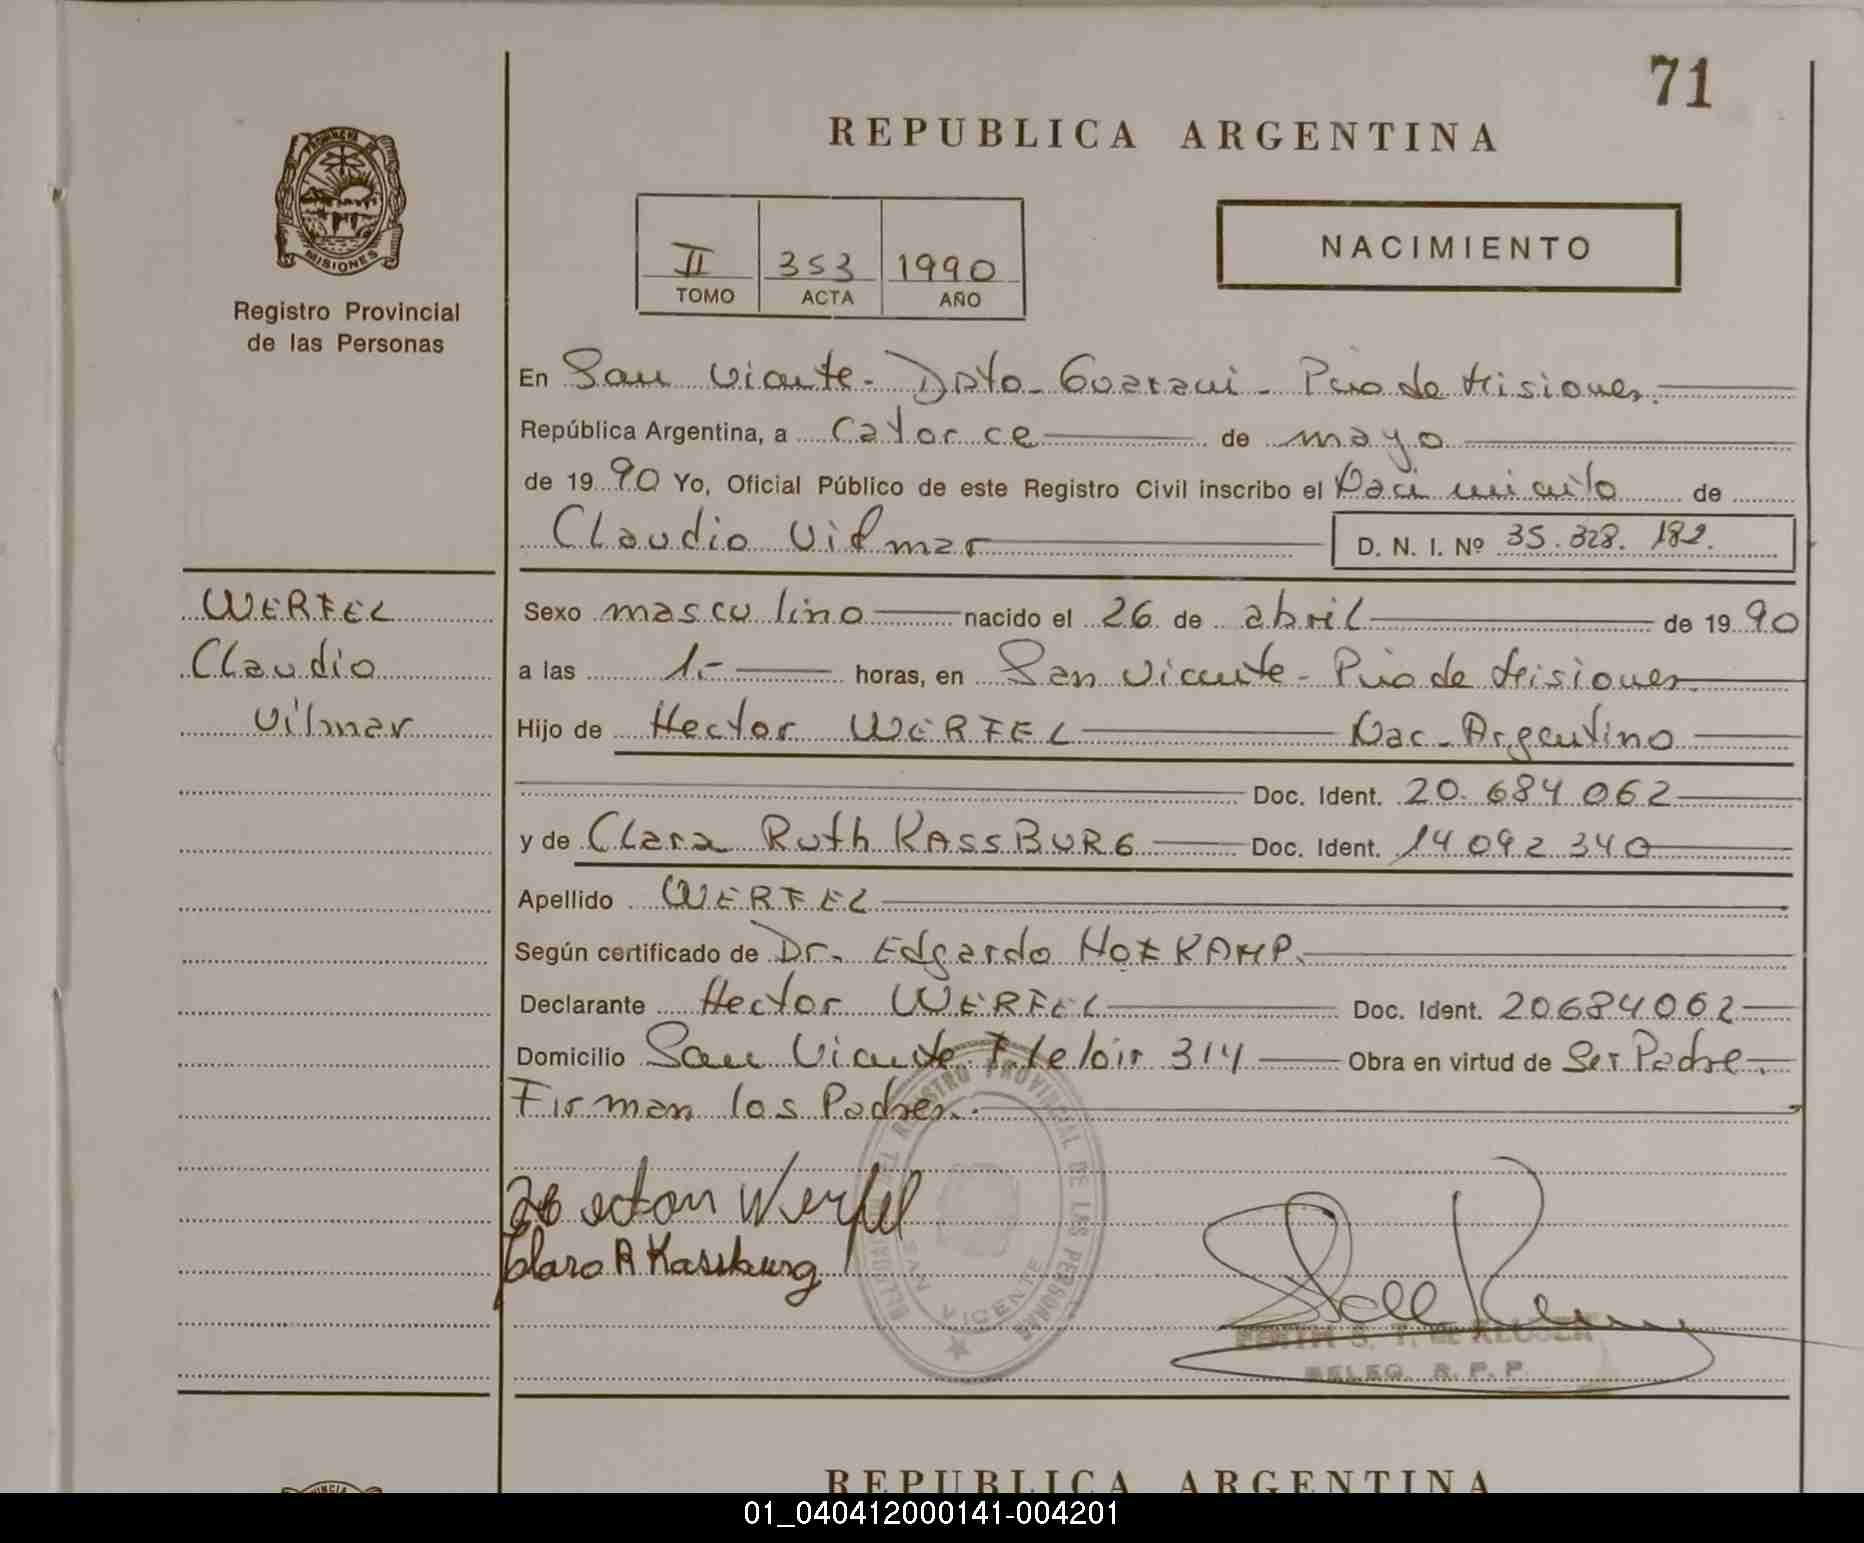 71
REPUBLICA ARGENTINA
PROVINCIA DE
MISIONES
Registro Provincial
de las Personas
II 353 1990
TOMO ACTA AÑO
NACIMIENTO
En San Vicente - Dpto. Guarani - Pcia de Misiones.
República Argentina, a Catorce de mayo
de 1990 Yo, Oficial Público de este Registro Civil inscribo el Nacimiento de
Claudio Vilmar D. N. I. Nº 35.328.182.
WERFEL
Claudio
Vilmar
Sexo masculino nacido el 26 de abril de 1990
a las 1.- horas, en San Vicente - Pcia de Misiones.
Hijo de Hector WERFEL Nac. Argentino
Doc. Ident. 20.684.062
y de Clara Ruth KASSBURG Doc. Ident. 14.092.340
Apellido WERFEL
Según certificado de Dr. Edgardo
Declarante Hector WERFEL Doc. Ident. 20684062
Domicilio San Vicente Leloir 314 Obra en virtud de Ser Padre.
Firman los Padres.
Hector Werfel
Clara R Kassburg
REGISTRO PROVINCIAL DE LAS PERSONAS
SAN VICENTE
DELEG. R. P. P.
REPUBLICA ARGENTINA
01_040412000141-004201